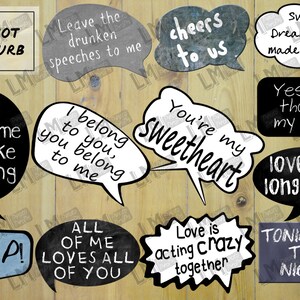 OT
URB
Leave the
drunken
speeches to me
cheers
to us
Su
Drea
made
I belong
to you,
you belong
to me
You're my
sweetheart
Yes
tha
my
me
ke
ng
love
long
P!
ALL
OF ME
LOVES ALL
OF YOU
Love is
acting crazy
together
TONI
T
NI